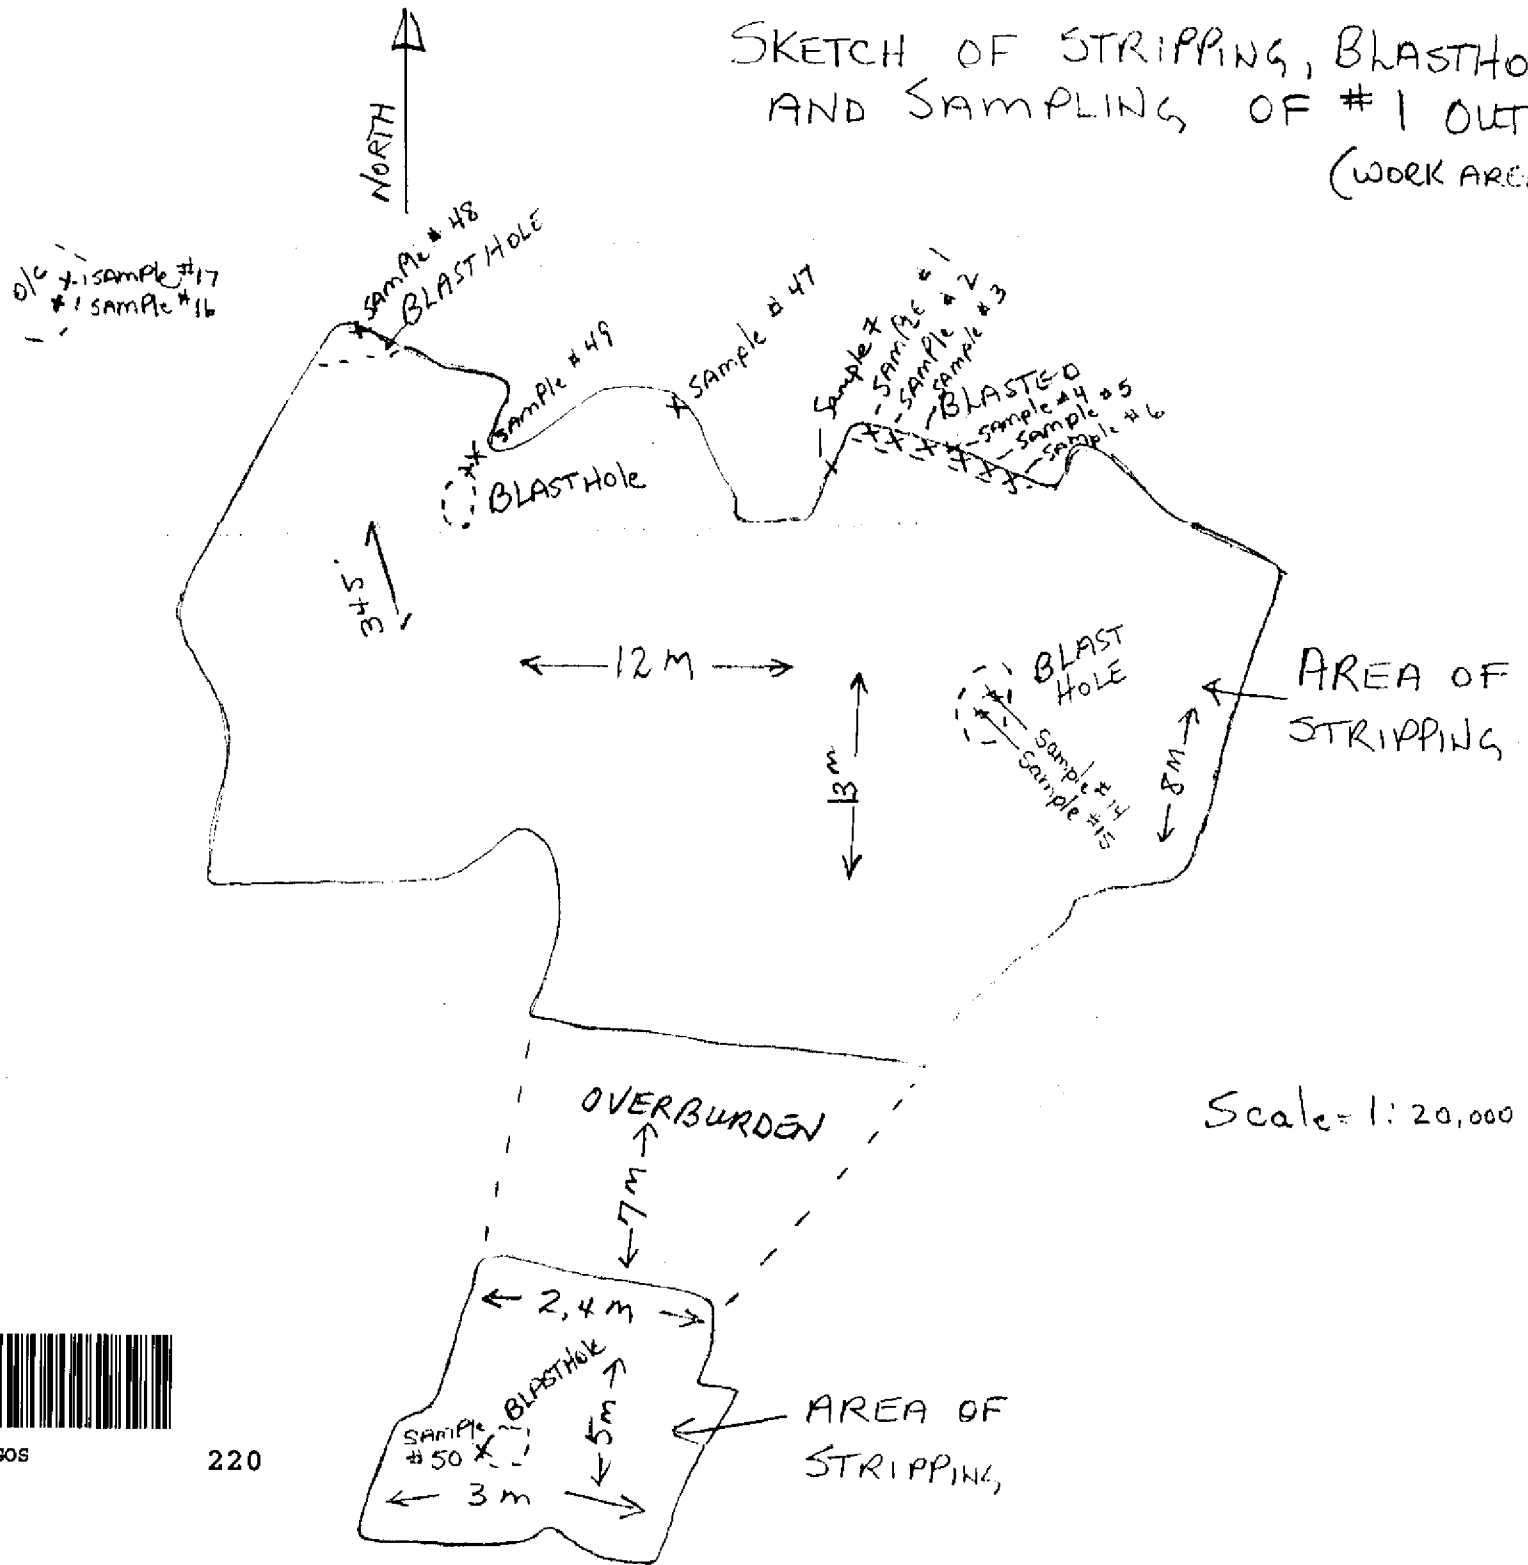 SKETCH OF STRIPPING, BLASTHO
AND SAMPLING OF # 1 OUT
(WORK ARE
NORTH
O/C
SAMPle #17
SAMPle #16
SAMPle # 48
BLAST HOLE
SAMPle # 49
SAMPle # 47
Sample 7
SAMPLE # 1
SAMPLE # 2
SAMPLE # 3
BLASTED
SAMPle #4
SAMPle # 5
SAMPle # 6
BLASTHole
345°
12 M
13 m
BLAST
HOLE
Sample # 14
Sample #15
8M
AREA OF
STRIPPING
OVERBURDEN
7 M
Scale = 1: 20,000
2,4 m
BLASTHole
5m
SAMPle
#50
3 m
AREA OF
STRIPPING
220